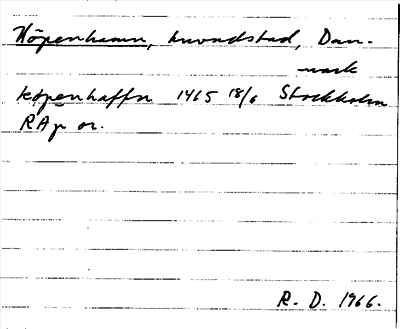 Köpenhamn, huvudstad, Dan-
mark
köpenhaffn 1465 18/6 Stockholm
RAp or.
R. D. 1966.